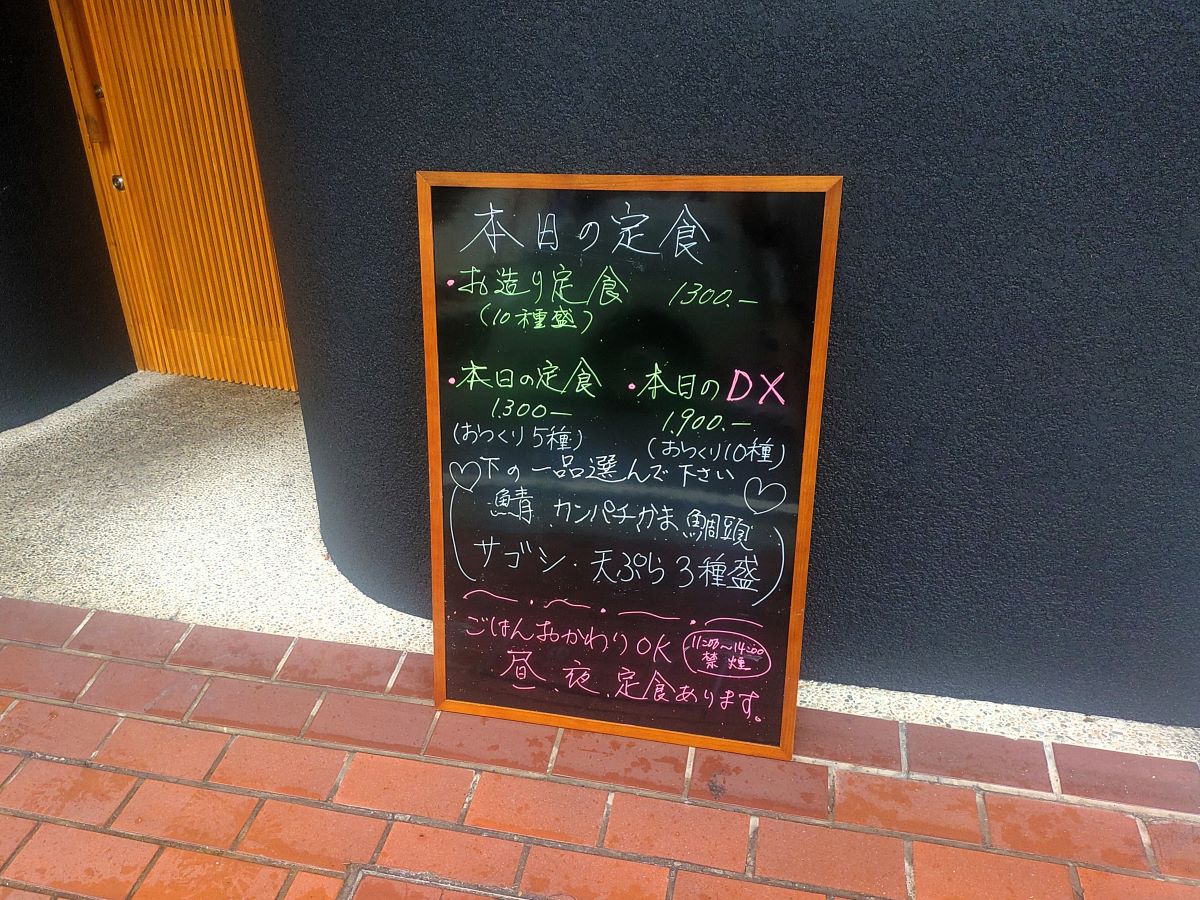 本日の定食
・お造り定食 1300.ー
(10種盛)
・本日の定食 ・本日のDX
1.300ー 1.900.ー
(おつくり5種) (おつくり10種)
♡下の一品選んで下さい♡
(鯖 カンパチかま 鯛頭
サゴシ・天ぷら3種盛)
ごはんおかわりOK 11:00～14:00
禁煙
昼、夜、定食あります。